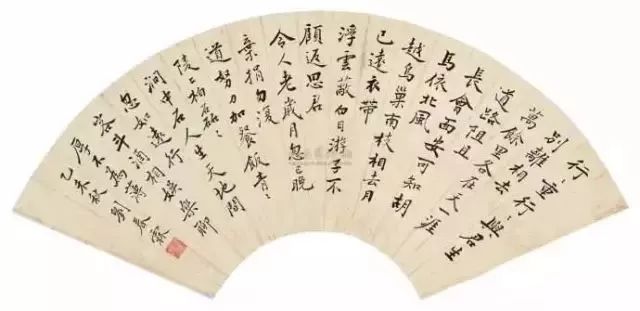 行〻重行〻與君生
別離相去
萬餘里各在天一涯
道路阻且
長會面安可知胡
馬依北風
越鳥巢南枝相去日
已遠衣帶
浮雲蔽白日遊子不
顧返思君
令人老歲月忽已晚
棄捐勿復
道努力加餐飯青〻
陵上柏磊〻
澗中石人生天地間
忽如遠行
客斗酒相娛樂聊
厚不為薄
乙未秋劉春霖